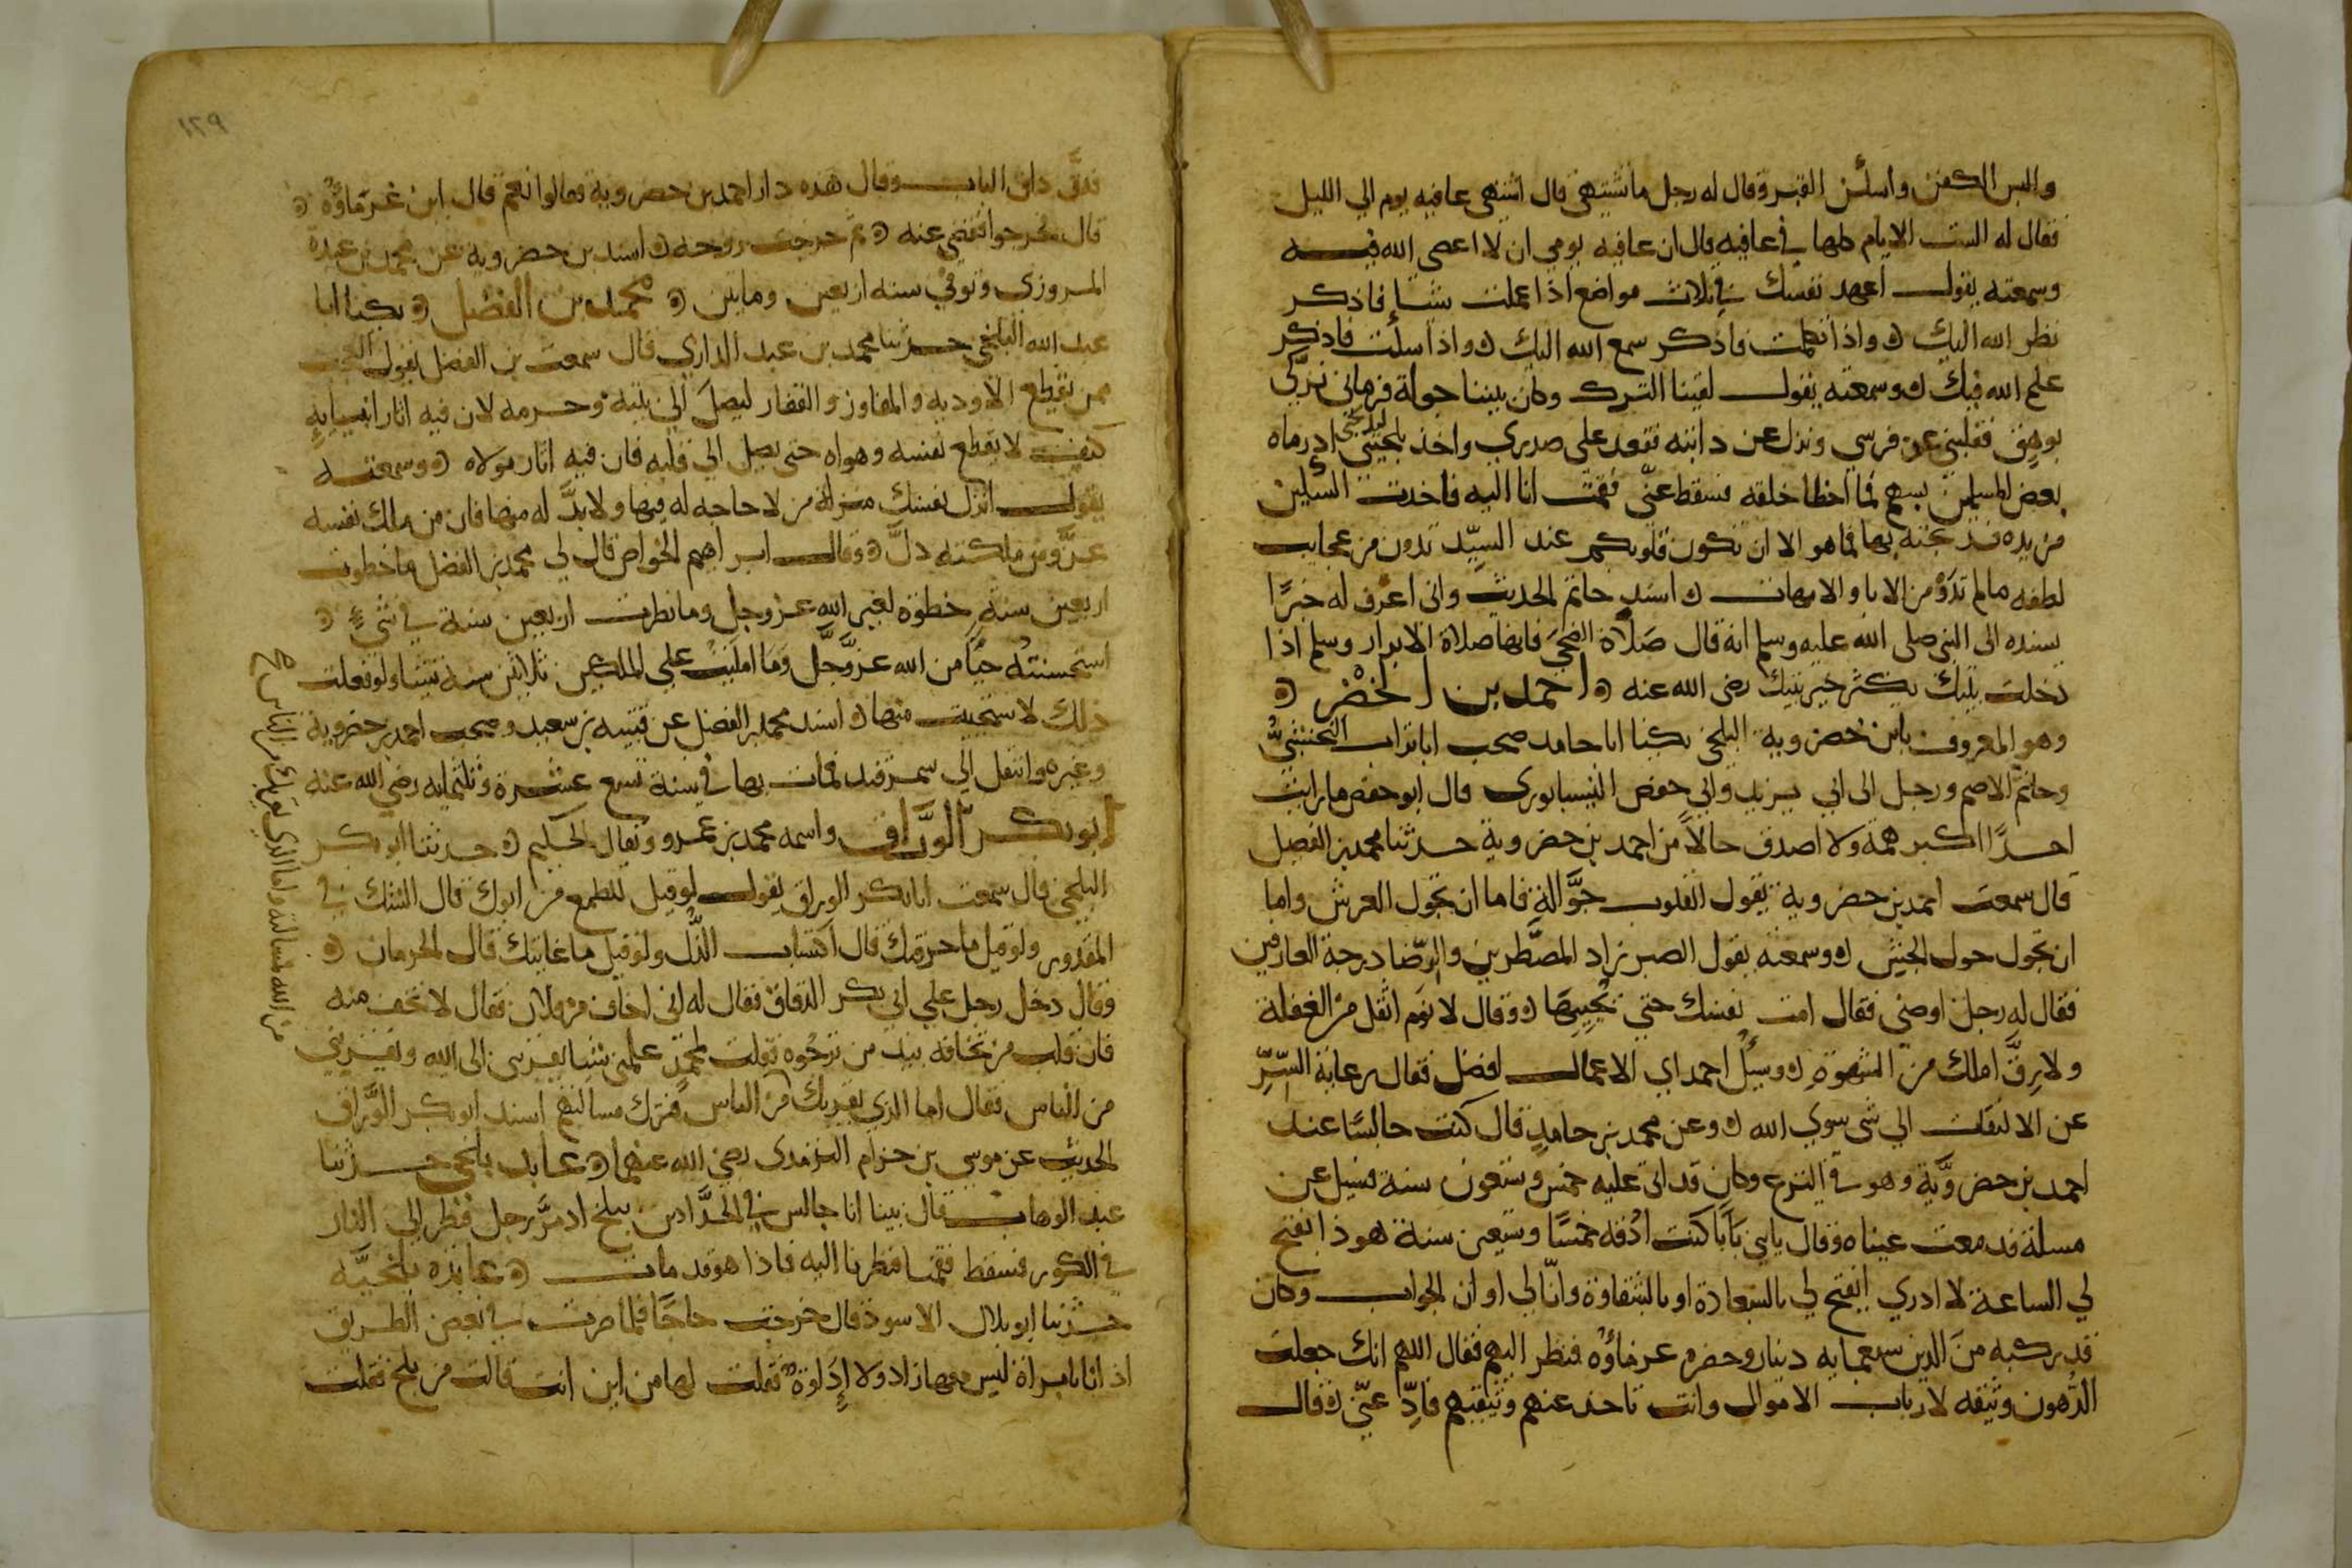 والبس الكفن واسكن القبر وقال له رجل ما تشتهي قال اشتهي عافيه يوم الي الليل
فقال له اليست الايام كلها في عافيه قال ان عافيه يومي ان لا اعصي الله فيه
وسمعته يقول اعهد نفسك في ثلاث مواضع اذا عملت شيا فاذكر
نظر الله اليك واذا تكلمت فاذكر سمع الله اليك واذا سكت فاذكر
علم الله فيك وسمعته يقول لقينا الترك وكان بيننا جولة فرماني تركي
بوهق فقلبني عن فرسي ونزل عن دابته فقعد على صدري واخذ بلحيتي اذ رماه
بعض المسلمين بسهم فما اخطا حلقه فسقط عني فقمت انا اليه فاخذت السكين
من يده فذبحته بها فما هو الا ان تكون قلوبكم عند السيد ترون من عجايب
لطفه ما لم تروا من الابا والامهات اسند حاتم الحديث واني اعرف له خبرا
يسنده الى النبي صلى الله عليه وسلم انه قال صلاة الضحى فانها صلاة الابرار وسلم اذا
دخلت بيتك يكثر خير بيتك رضي الله عنه احمد بن الخضر
وهو المعروف بابن خضرويه البلخي يكنا ابا حامد صحب ابا تراب النخشبي
وحاتم الاصم ورحل الى ابي يزيد وابي حفص النيسابوري قال ابو حفص ما رايت
احدا اكبر همة ولا اصدق حالا من احمد بن خضروية حدثنا محمد بن الفضل
قال سمعت احمد بن خضروية يقول القلوب جوالة فاما ان تجول العرش واما
ان تجول حول الحش وسمعته يقول الصبر زاد المضطرين والرضا درجة العارفين
فقال له رجل اوصني فقال امت نفسك حتى تحييها وقال لا نوم اثقل من الغفلة
ولا رق املك من الشهوة وسئل احمد اي الاعمال افضل فقال رعاية السر
عن الالتفات الي شي سوي الله وعن محمد بن حامد قال كنت جالسا عند
احمد بن خضروية وهو في النزع وكان قد اتى عليه خمس وتسعون سنة فسيل عن
مسلة فدمعت عيناه وقال يا بني بابا كنت ادقه خمسا وتسعين سنة هوذا يفتح
لي الساعة لا ادري ايفتح لي بالسعادة او بالشقاوة وانا لي اوان الجواب وكان
قد ركبه من الدين سبعمايه دينار وحضره غرماؤه فنظر اليهم فقال اللهم انك جعلت
الرهون وثيقه لارباب الاموال وانت تاخذ عنهم وثيقتهم فاد عني قال
١٢٩
فدق داق الباب وقال هذه دار احمد بن خضروية فقالوا نعم قال اين غرماؤه
قال فخرجوا فقضى عنه ثم خرجت روحه اسند بن خضروية عن محمد بن عبدة
المروزي وتوفي سنه اربعين وماتين محمد بن الفضل يكنا ابا
عبد الله البلخي حدثنا محمد بن عبد الله الرازي قال سمعت بن الفضل يقول العجب
ممن يقطع الاوديه والمفاوز والقفار ليصل الي بيته وحرمه لان فيه اثار انبيايه
كيف لا يقطع نفسه وهواه حتى يصل الي قلبه فان فيه اثار مولاه وسمعته
يقول انزل نفسك منزلة من لا حاجه له فيها ولا بد له منها فان من ملك نفسه
عز ومن ملكته ذل وقال ابراهيم الخواص قال لي محمد بن الفضل ما خطوت
اربعين سنه خطوة لغير الله عز وجل وما نظرت اربعين سنة في شيء
استحسنته حيا من الله عز وجل وما امليت علي الملكين ثلاثين سنة شيا ولو فعلت
ذلك لاستحييت منها اسند محمد بن الفضل عن قتيبه بن سعيد وصحب احمد بن خضروية
وغيره وانتقل الي سمرقند فمات بها في سنة تسع عشرة وثلثمايه رضي الله عنه
ابو بكر الوراق واسمه محمد بن عمرو ويقال الحكيم حدثنا ابو بكر
البلخي قال سمعت ابا بكر الوراق يقول لو قيل للطمع من ابوك قال الشك في
المقدور ولو قيل ما حرفتك قال اكتساب الذل ولو قيل ما غايتك قال الحرمان
وقال دخل رجل علي ابي بكر الوراق فقال له اني اخاف من فلان فقال لا تخف منه
فان قلب من تخافه بيد من ترجوه فقلت لمحمد علمني شيا يقربني الى الله ويقربني
من الناس فقال اما الذي يقربك من الناس فترك مسالتهم اسند ابو بكر الوراق
الحديث عن موسى بن حزام الترمذي رضي الله عنهما عابد بلخي حدثنا
عبد الوهاب قال بينا انا جالس في الحدادين ببلخ اذ مر رجل فنظر الي النار
في الكور فسقط فقمنا فنظرنا اليه فاذا هو قد مات عابدة بلخيه
حدثنا ابو بلال الاسود قال خرجت حاجا فلما صرت في بعض الطريق
اذ انا بامراة ليس معها زاد ولا اداوة فقلت لها من اين انت قالت من بلخ فقلت
من الله فمسالته واما الذي يقربك من الناس صح